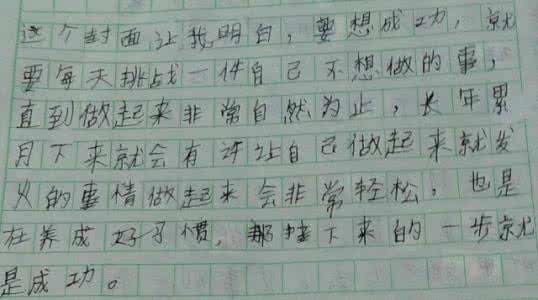 这个封面让我明白，要想成功，就
要每天挑战一件自己不想做的事，
直到做起来非常自然为止，长年累
月下来就会有许让自己做起来就发
火的事情做起来会非常轻松，也是
在养成好习惯，那接下来的一步就
是成功。